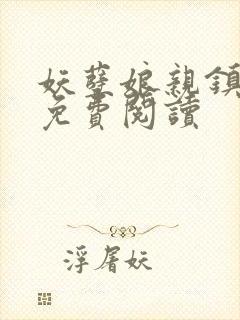 妖孽娘親鎮
免費閱讀
浮屠妖